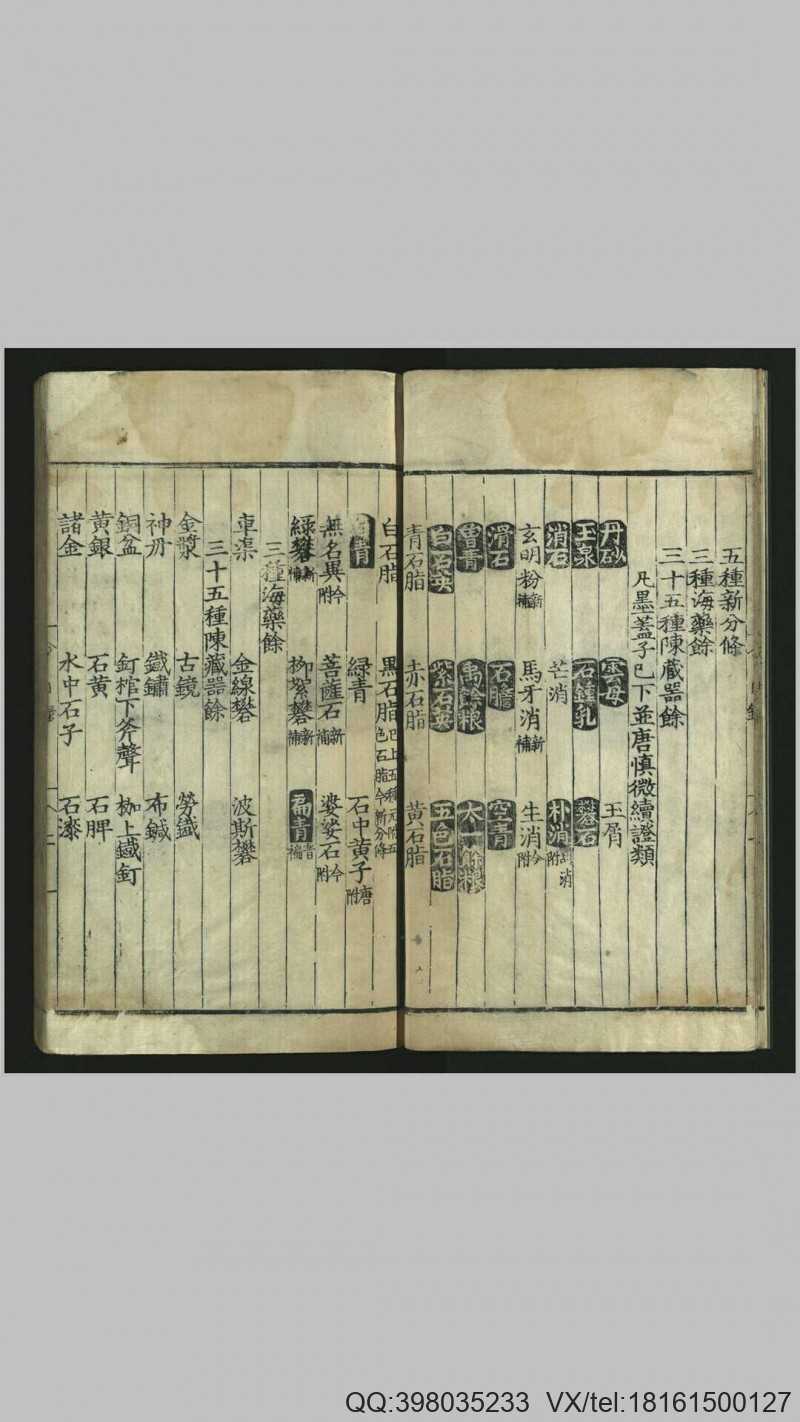 五種新分條
三種海藥餘
三十五種陳藏器餘
凡墨蓋子已下並唐慎微續證類
丹砂 雲母 玉屑
玉泉 石鍾乳 礬石
消石 芒消 朴消附消
玄明粉新補 馬牙消新補 生消今附
滑石 石膽 空青
曾青 禹餘粮 太一餘粮
白石英 紫石英 五色石脂
青石脂 赤石脂 黄石脂
白石脂 黑石脂已上五種元附五色石脂今新分條
青 緑青 石中黄子唐附
無名異今附 菩薩石新補 婆娑石今附
緑礬新補 柳絮礬新補 扁青
三種海藥餘
車渠 金線礬 波斯礬
三十五種陳藏器餘
金漿 古鏡 勞鐵
神丹 鐵鏽 布鍼
銅盆 釘棺下斧聲 枷上鐵釘
黄銀 石黄 石脾
諸金 水中石子 石漆
QQ:398035233 VX/tel:18161500127